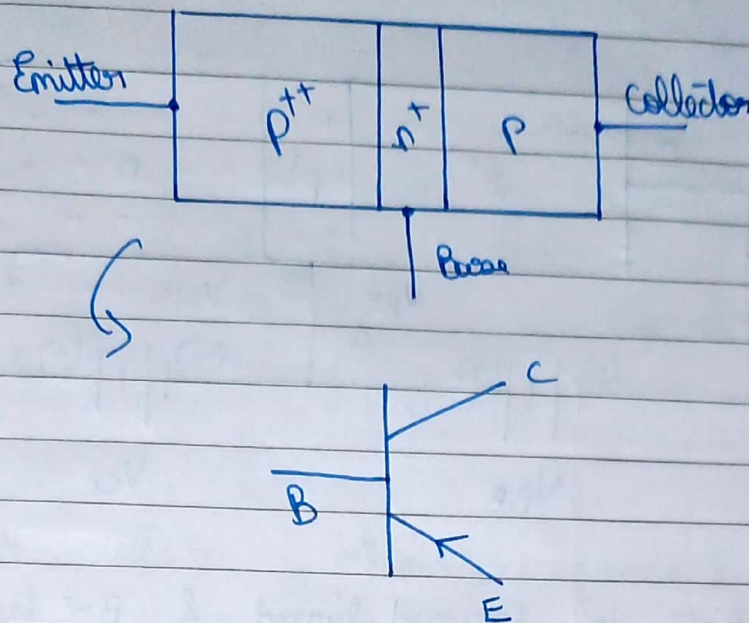 Emitter
P++
n+
P
Collector
Base
C
B
E